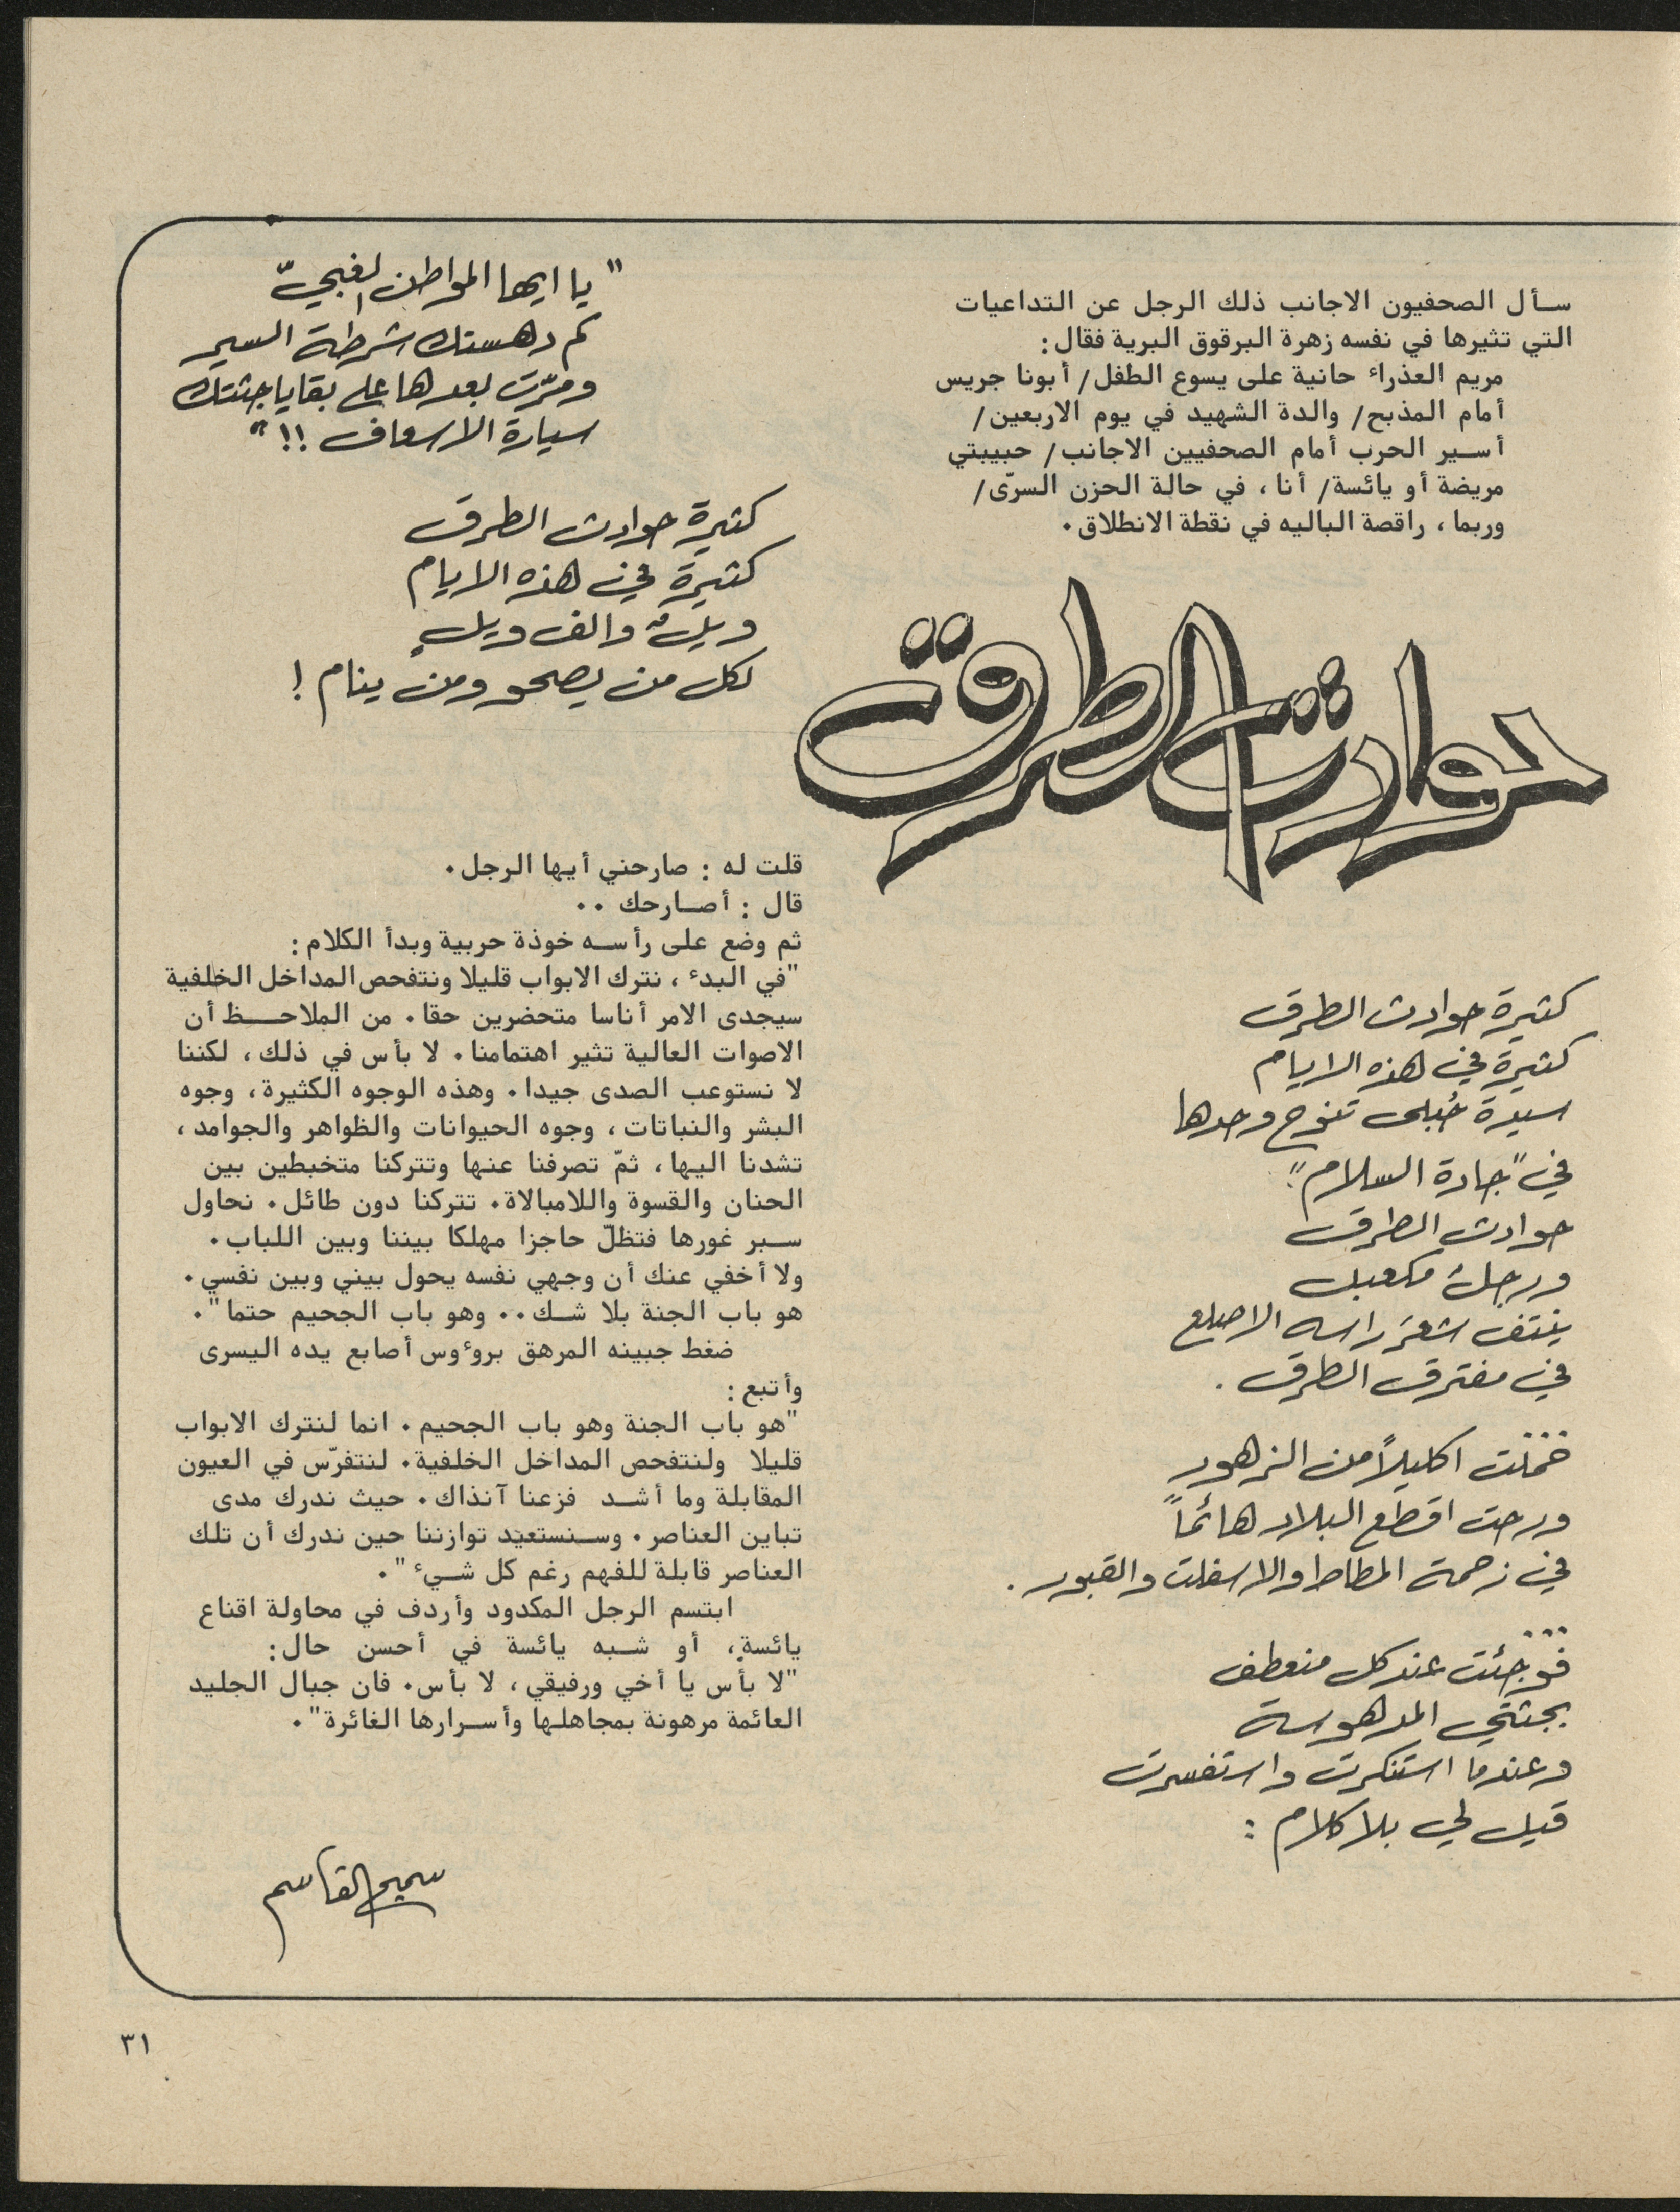 سأل الصحفيون الاجانب ذلك الرجل عن التداعيات
التي تثيرها في نفسه زهرة البرقوق البرية فقال:
مريم العذراء حانية على يسوع الطفل/ أبونا جريس
أمام المذبح/ والدة الشهيد في يوم الاربعين/
أسير الحرب أمام الصحفيين الاجانب/ حبيبتي
مريضة أو يائسة/ أنا، في حالة الحزن السرّى/
وربما، راقصة الباليه في نقطة الانطلاق.
حوادث الطرق
كثيرة حوادث الطرق
كثيرة في هذه الايام
سيدة حُبلى تنوح وحدها
في "جادة السلام".
حوادث الطرق
ورجلٌ مكعبل
ينتف شعرَ راسه الاصلع
في مفترق الطرق.
...
حملت اكليلاً من الزهور
ورحت اقطع البلاد هائماً
في زحمة المطاط والاسفلت والقبور.
...
فوجئت عند كل منعطف
بجثتي المدهوسة
وعندما استنكرت واستفسرت
قيل لي بلا كلام:
"يا ايها المواطن الغبيّ
كم دهستك شرطة السير
ومرّت بعدها على بقايا جثتك
سيارة الاسعاف!!"
كثيرة حوادث الطرق
كثيرة في هذه الايام
ويلٌ والف ويلٍ
لكل من يصحو ومن ينام!
قلت له: صارحني أيها الرجل.
قال: أصارحك..
ثم وضع على رأسه خوذة حربية وبدأ الكلام:
"في البدء، نترك الابواب قليلا ونتفحص المداخل الخلفية
سيجدى الامر أناسا متحضرين حقا. من الملاحظ أن
الاصوات العالية تثير اهتمامنا. لا بأس في ذلك، لكننا
لا نستوعب الصدى جيدا. وهذه الوجوه الكثيرة، وجوه
البشر والنباتات، وجوه الحيوانات والظواهر والجوامد،
تشدنا اليها، ثمّ تصرفنا عنها وتتركنا متخبطين بين
الحنان والقسوة واللامبالاة. تتركنا دون طائل. نحاول
سبر غورها فتظلّ حاجزا مهلكا بيننا وبين اللباب.
ولا أخفي عنك أن وجهي نفسه يحول بيني وبين نفسي.
هو باب الجنة بلا شك.. وهو باب الجحيم حتما".
ضغط جبينه المرهق بروءوس أصابع يده اليسرى
وأتبع:
"هو باب الجنة وهو باب الجحيم. انما لنترك الابواب
قليلا ولنتفحص المداخل الخلفية. لنتفرّس في العيون
المقابلة وما أشد فزعنا آنذاك. حيث ندرك مدى
تباين العناصر. وسنستعيد توازننا حين ندرك أن تلك
العناصر قابلة للفهم رغم كل شيء".
ابتسم الرجل المكدود وأردف في محاولة اقناع
يائسة، أو شبه يائسة في أحسن حال:
"لا بأس يا أخي ورفيقي، لا بأس. فان جبال الجليد
العائمة مرهونة بمجاهلها وأسرارها الغائرة".
سميح القاسم
٣١